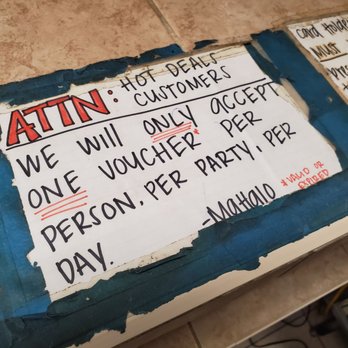 ATTN: HOT DEALS
CUSTOMERS
WE WILL ONLY ACCEPT
ONE VOUCHER* PER
PERSON, PER PARTY, PER
DAY.
-MAHALO
* VALID OR
EXPIRED
Card Holde
MUT